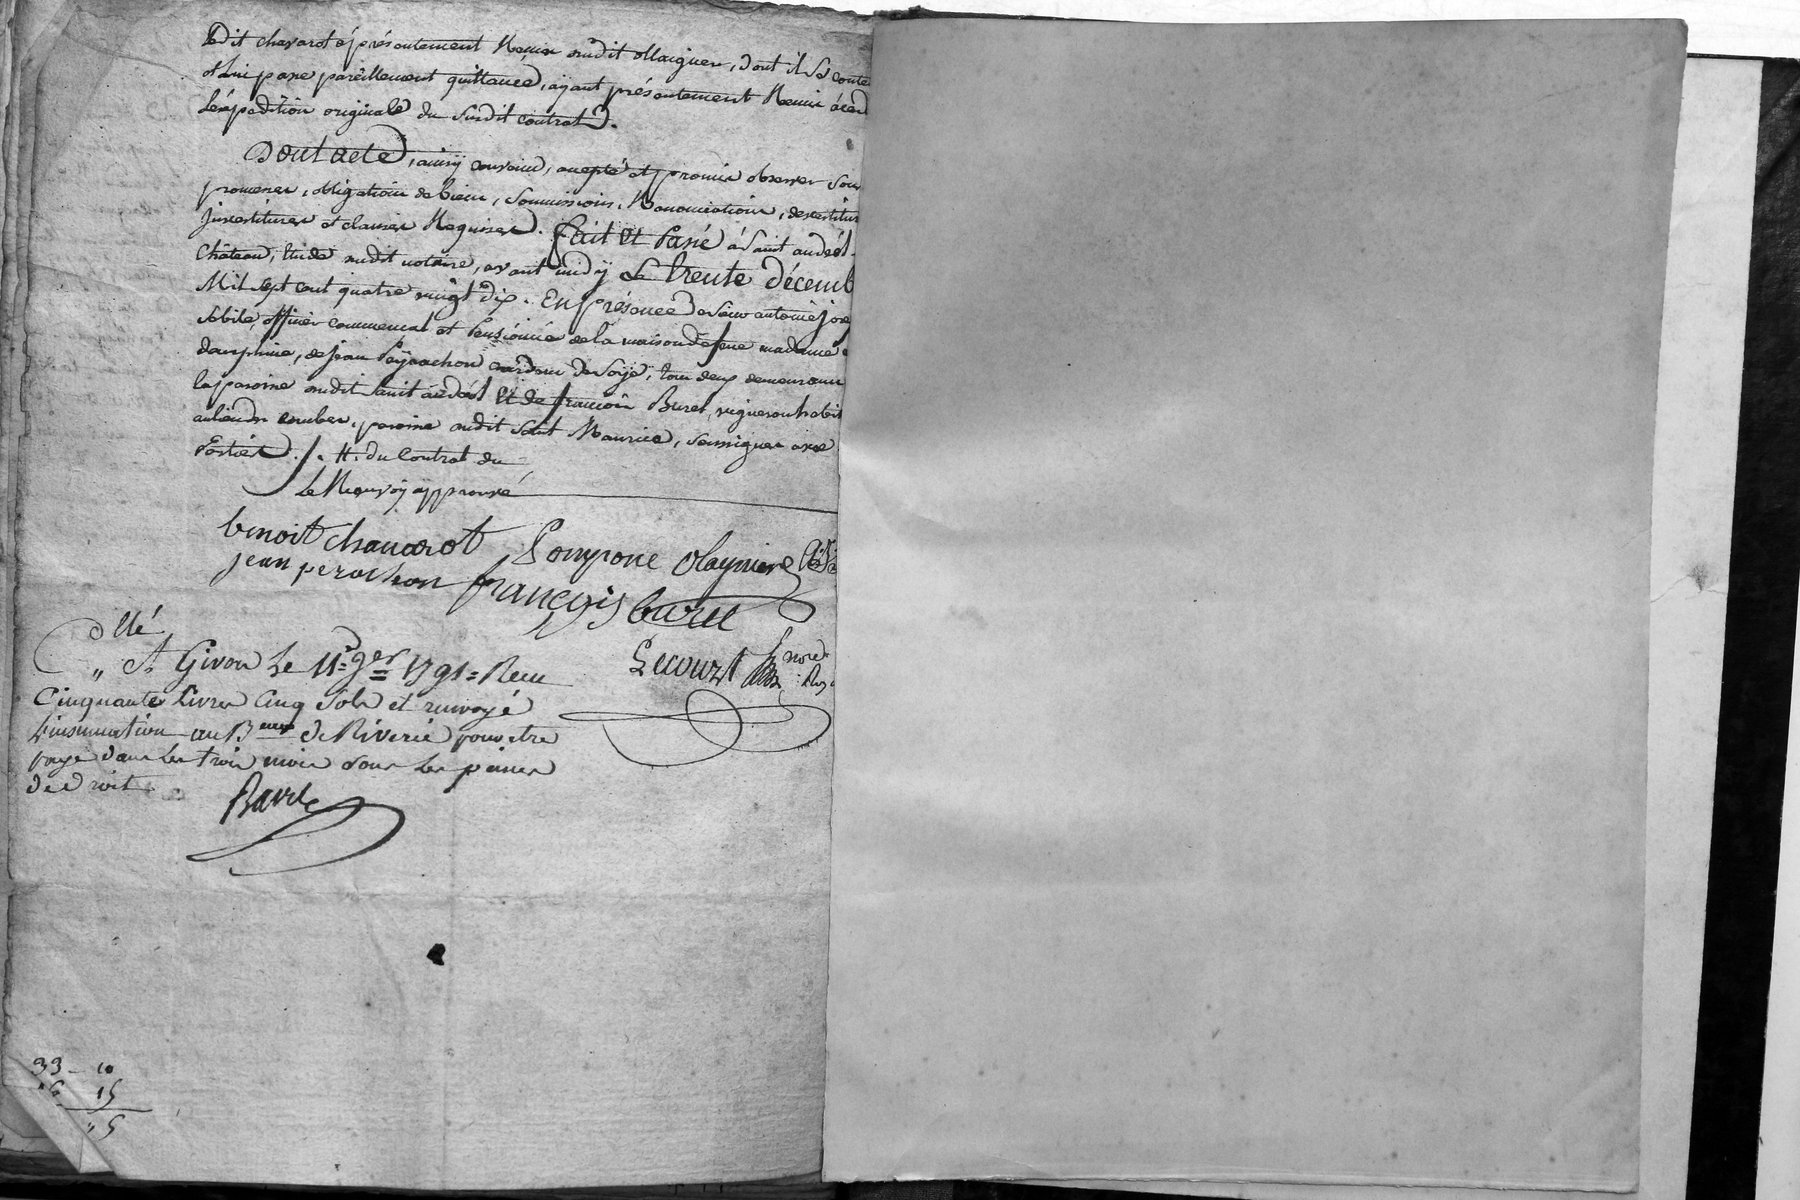 Dit chavarot a présentement Remis audit ollaignier, dont il se conte
et lui passe pareillement quittance, ayant présentement Remis
L'éxpedition originale du Susdit contrat.
Dont acte, ainsy convenu, accepté et promis observer sous
promesses, obligation de biens, Soumissions, Renonciations, devestitur
Jnvestitures et clauses Requises. Fait et Passé à Saint andéol
Château, Etude audit notaire, avant midÿ Le trente décemb
Mil Sept cent quatre vingt dix. En présence de Sieur antoine jos
officier commensal et Pensionné de la maison de feue madame
dauphine, de jean Peÿrachon de Soÿe, tous deux demeurant
la paroisse audit Saint andéol Et de françois Buret, vigneron habit
au lieu de combes, paroisse audit Saint Maurice, Soussignés avec
Parties ./. H. du Contrat du
Le Renvoy approuvé
benoit chavarot Pompone Olagniere
jean perachon françois buret
Lecourt nore Roy
,, A Givors Le 11 . 1791 = Recu
Cinquante Livres Cinq Sols et renvoyé
L'insinuation au B eau de Riverie pour etre
payé dans les trois mois sous les peines
de droit
33 - 10
16 15
,, 5